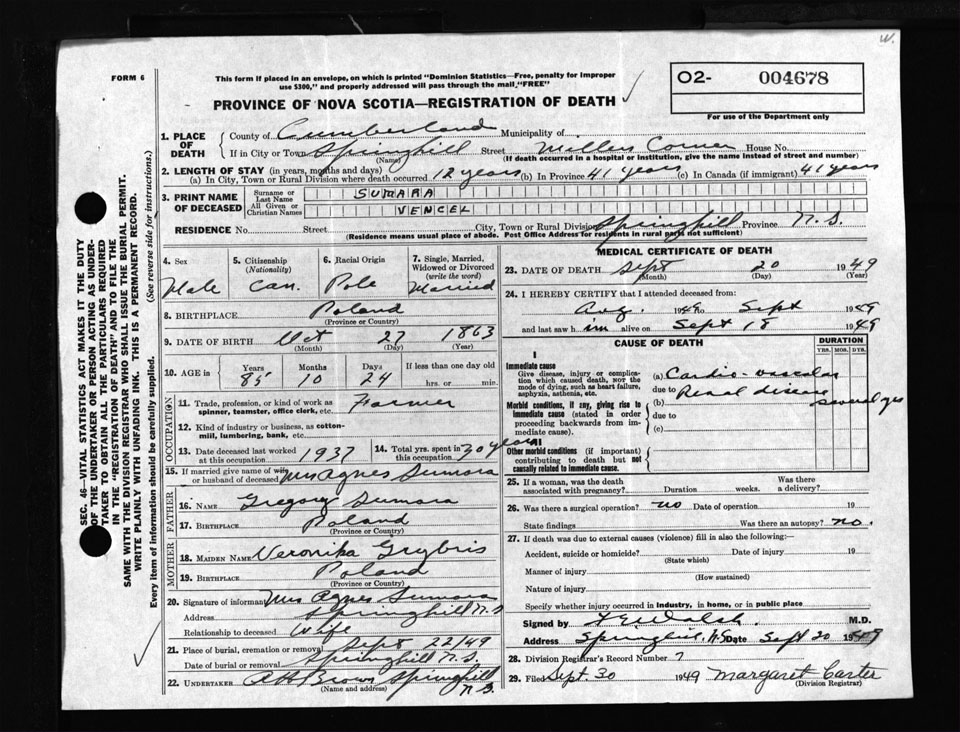 W.
FORM 6
This form if placed in an envelope, on which is printed "Dominion Statistics—Free, penalty for improper
use $300," and properly addressed will pass through the mail "FREE"
PROVINCE OF NOVA SCOTIA—REGISTRATION OF DEATH
O2- 004678
For use of the Department only
1. PLACE OF DEATH
County of Cumberland Municipality of
If in City or Town Springhill Street Millers Corner House No.
(Name) (If death occurred in a hospital or institution, give the name instead of street and number)
2. LENGTH OF STAY (in years, months and days)
(a) In City, Town or Rural Division where death occurred 12 years (b) In Province 41 years (c) In Canada (if immigrant) 41 years
3. PRINT NAME OF DECEASED
Surname or Last Name SUMARA
All Given or Christian Names VENCEL
RESIDENCE No. Street City, Town or Rural Division Springhill Province N.S.
(Residence means usual place of abode. Post Office Address for residents in rural parts not sufficient)
4. Sex Male
5. Citizenship (Nationality) Can.
6. Racial Origin Pole
7. Single, Married, Widowed or Divorced (write the word) Married
8. BIRTHPLACE Poland
(Province or Country)
9. DATE OF BIRTH Oct 27 1863
(Month) (Day) (Year)
10. AGE in Years 85 Months 10 Days 24 If less than one day old hrs. or min.
OCCUPATION
11. Trade, profession, or kind of work as spinner, teamster, office clerk, etc. Farmer
12. Kind of industry or business, as cotton-mill, lumbering, bank, etc.
13. Date deceased last worked at this occupation 1937
14. Total yrs. spent in this occupation 30 years
15. If married give name of wife or husband of deceased Mrs Agnes Sumara
FATHER
16. NAME Gregory Sumara
17. BIRTHPLACE Poland
(Province or Country)
MOTHER
18. MAIDEN NAME Veronika
19. BIRTHPLACE Poland
(Province or Country)
20. Signature of informant Mrs Agnes Sumara
Address Springhill N.S
Relationship to deceased Wife
21. Place of burial, cremation or removal Sept 22/49
Date of burial or removal Springhill N.S.
22. UNDERTAKER A H Brown Springhill N.S.
(Name and address)
MEDICAL CERTIFICATE OF DEATH
23. DATE OF DEATH Sept 20 1949
(Month) (Day) (Year)
24. I HEREBY CERTIFY that I attended deceased from:
Aug. 1949 to Sept 1949
and last saw him alive on Sept 18 1949
CAUSE OF DEATH DURATION
YRS. MOS. DYS.
I
Immediate cause
Give disease, injury or complication which caused death, NOT the mode of dying, such as heart failure, asphyxia, asthenia, etc.
(a) Cardio-vascular
due to
(b) Renal disease several yrs
Morbid conditions, if any, giving rise to immediate cause (stated in order proceeding backwards from immediate cause).
due to
(c)
II
Other morbid conditions (if important) contributing to death but not causally related to immediate cause.
25. If a woman, was the death associated with pregnancy? Duration weeks. Was there a delivery?
26. Was there a surgical operation? no Date of operation 19
State findings Was there an autopsy? no.
27. If death was due to external causes (violence) fill in also the following:—
Accident, suicide or homicide? Date of injury 19
(State which)
Manner of injury
(How sustained)
Nature of injury
Specify whether injury occurred in industry, in home, or in public place
Signed by Walsh M.D.
Address Springhill, N.S. Date Sept 20 1949
28. Division Registrar's Record Number 7
29. Filed Sept. 30 1949 Margaret Carter
(Division Registrar)
SEC. 46—VITAL STATISTICS ACT MAKES IT THE DUTY
OF THE UNDERTAKER OR PERSON ACTING AS UNDERTAKER TO OBTAIN ALL THE PARTICULARS REQUIRED
IN THE "REGISTRATION OF DEATH" AND TO FILE THE
SAME WITH THE DIVISION REGISTRAR WHO SHALL ISSUE THE BURIAL PERMIT.
WRITE PLAINLY WITH UNFADING INK. THIS IS A PERMANENT RECORD.
Every item of information should be carefully supplied. (See reverse side for instructions.)